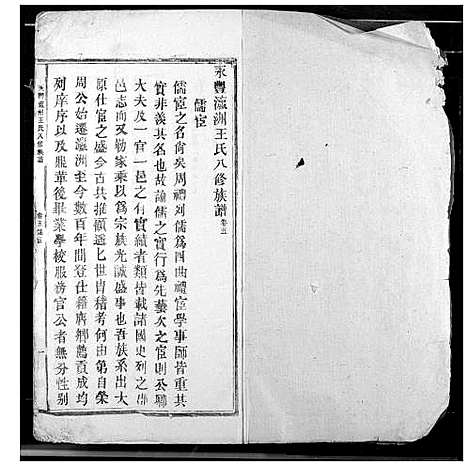 永豐瀛洲王氏八修族譜 卷三
儒宦
儒宦之名尚矣周禮列儒為四曲禮宦學事師皆重其
實非美其名也故論儒之實行為先藝次之宦則公卿
大夫及一官一邑之有實績者類皆載諸國史列之
邑志而又勒家乘以為宗族光誠盛事也吾族系出大
原仕宦之盛今古其匹世胄稽考何由第自榮
周公始遷瀛洲至今數百年間登仕籍膺鄉薦貢成均
列庠序以及服華後畢業學校服務官公者無分性別
永豐瀛洲王氏八修族譜
一